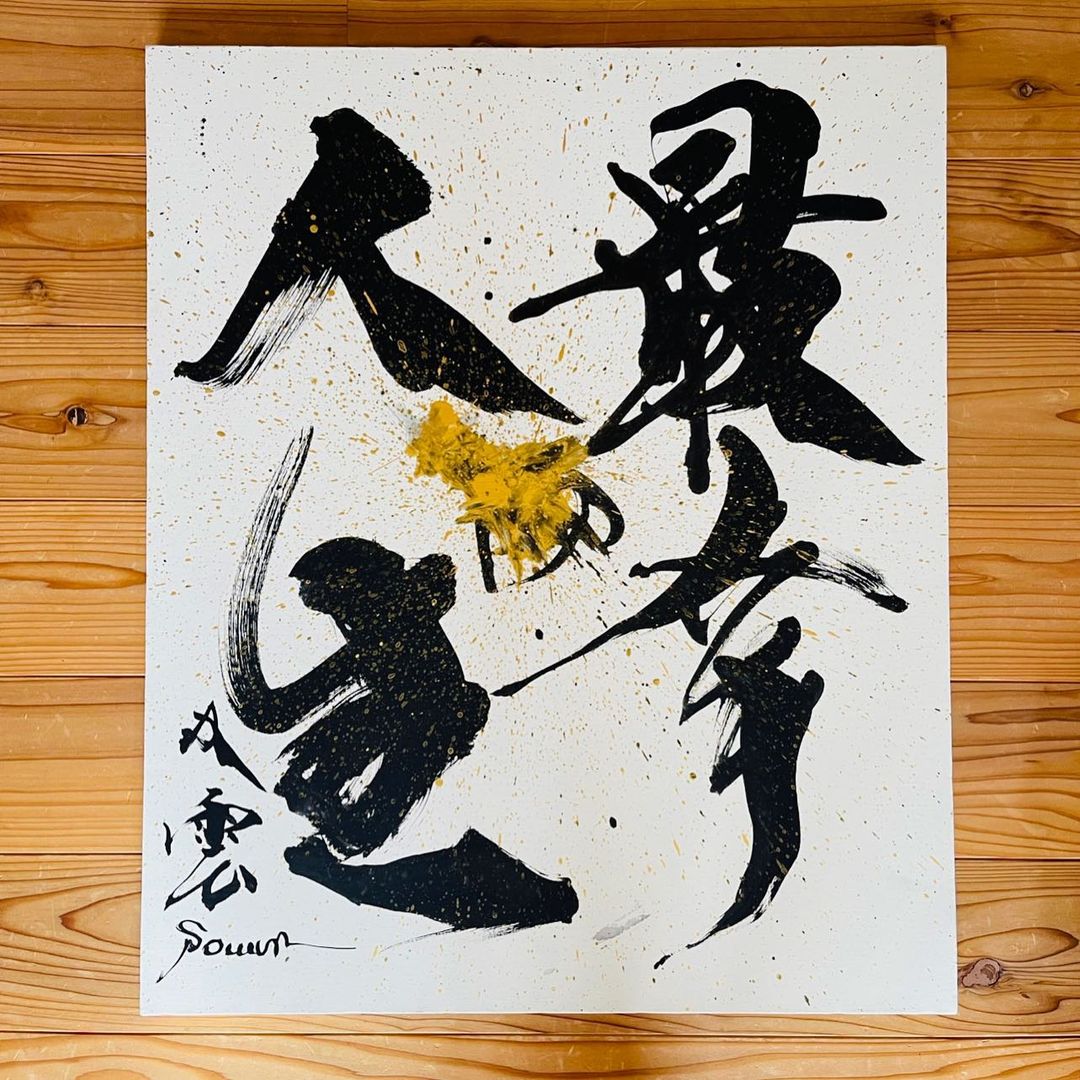 最幸
の
人生
双雲
Souun